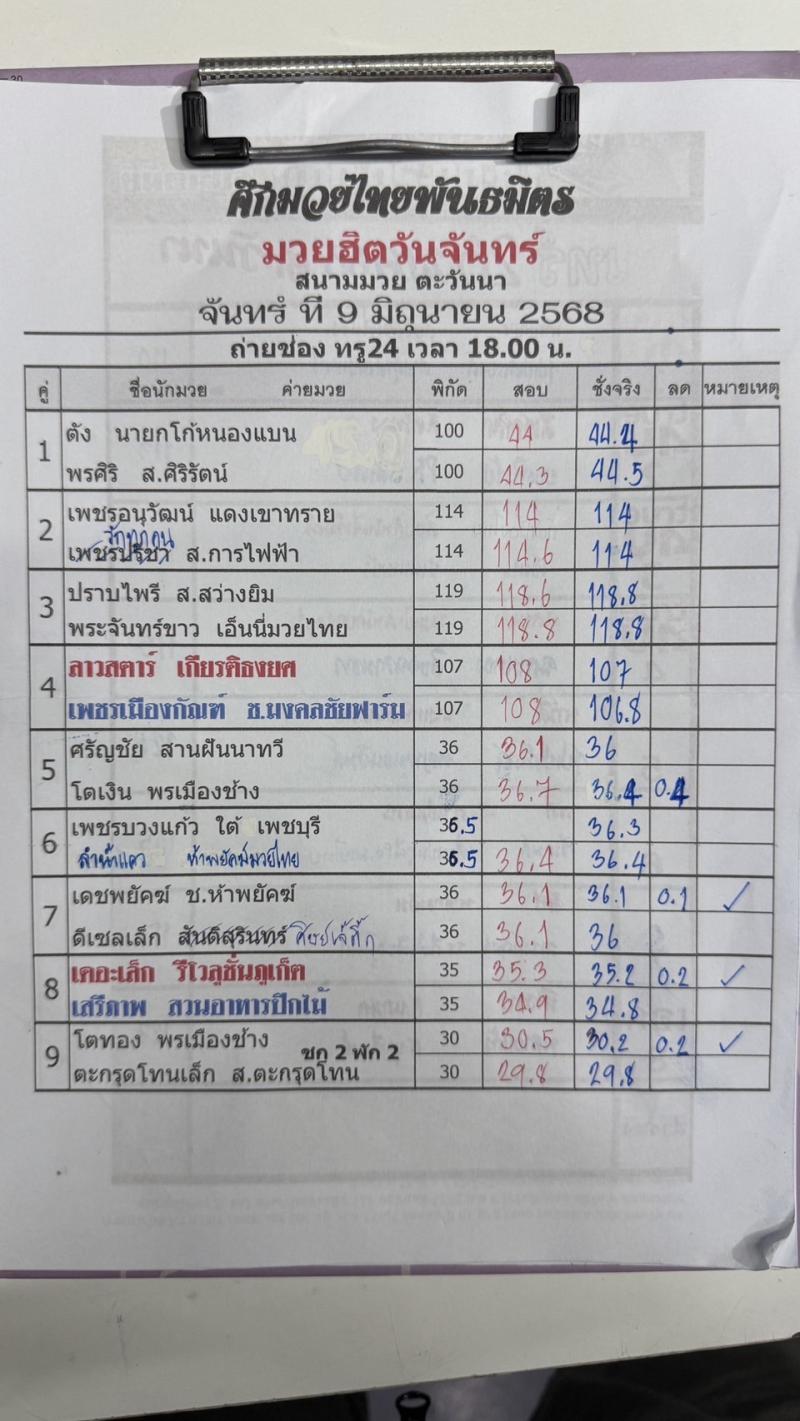 ศึกมวยไทยพันธมิตร
มวยฮิตวันจันทร์
สนามมวย ตะวันนา
จันทร์ ที่ 9 มิถุนายน 2568
ถ่ายช่อง ทรู24 เวลา 18.00 น.
คู่ ชื่อนักมวย ค่ายมวย พิกัด สอบ ชั่งจริง ลด หมายเหตุ
1 ตัง นายกโก้หนองแบน 100 44 44.4
พรศิริ ส.ศิริรัตน์ 100 44.3 44.5
2 เพชรอนุวัฒน์ แดงเขาทราย 114 114 114
รักทุกคน
เพชรปรีชา ส.การไฟฟ้า 114 114.6 114
3 ปราบไพรี ส.สว่างยิม 119 118.6 118.8
พระจันทร์ขาว เอ็นนี่มวยไทย 119 118.8 118.8
4 ลาวสตาร์ เกียรติธงยศ 107 108 107
เพชรเมืองกัณฑ์ ช.มงคลชัยฟาร์ม 107 108 106.8
5 ศรัญชัย สานฝันนาทวี 36 36.1 36
โตเงิน พรเมืองช้าง 36 36.7 36.4 0.4
6 เพชรบวงแก้ว ใต้ เพชบุรี 36.5 36.3
ลำน้ำแคว ห้าพยัคฆ์มวยไทย 36.5 36.4 36.4
7 เดชพยัคฆ์ ช.ห้าพยัคฆ์ 36 36.1 36.1 0.1 ✓
ดีเซลเล็ก สันติสุรินทร์ ศิษย์เจ๊กี๊ก 36 36.1 36
8 เคอะเล็ก รีโวลูชั่นภูเก็ต 35 35.3 35.2 0.2 ✓
เสรีภาพ สวนอาหารปีกไม้ 35 34.9 34.8
9 โตทอง พรเมืองช้าง 30 30.5 30.2 0.2 ✓
ชก 2 พัก 2
ตะกรุดโทนเล็ก ส.ตะกรุดโทน 30 29.8 29.8